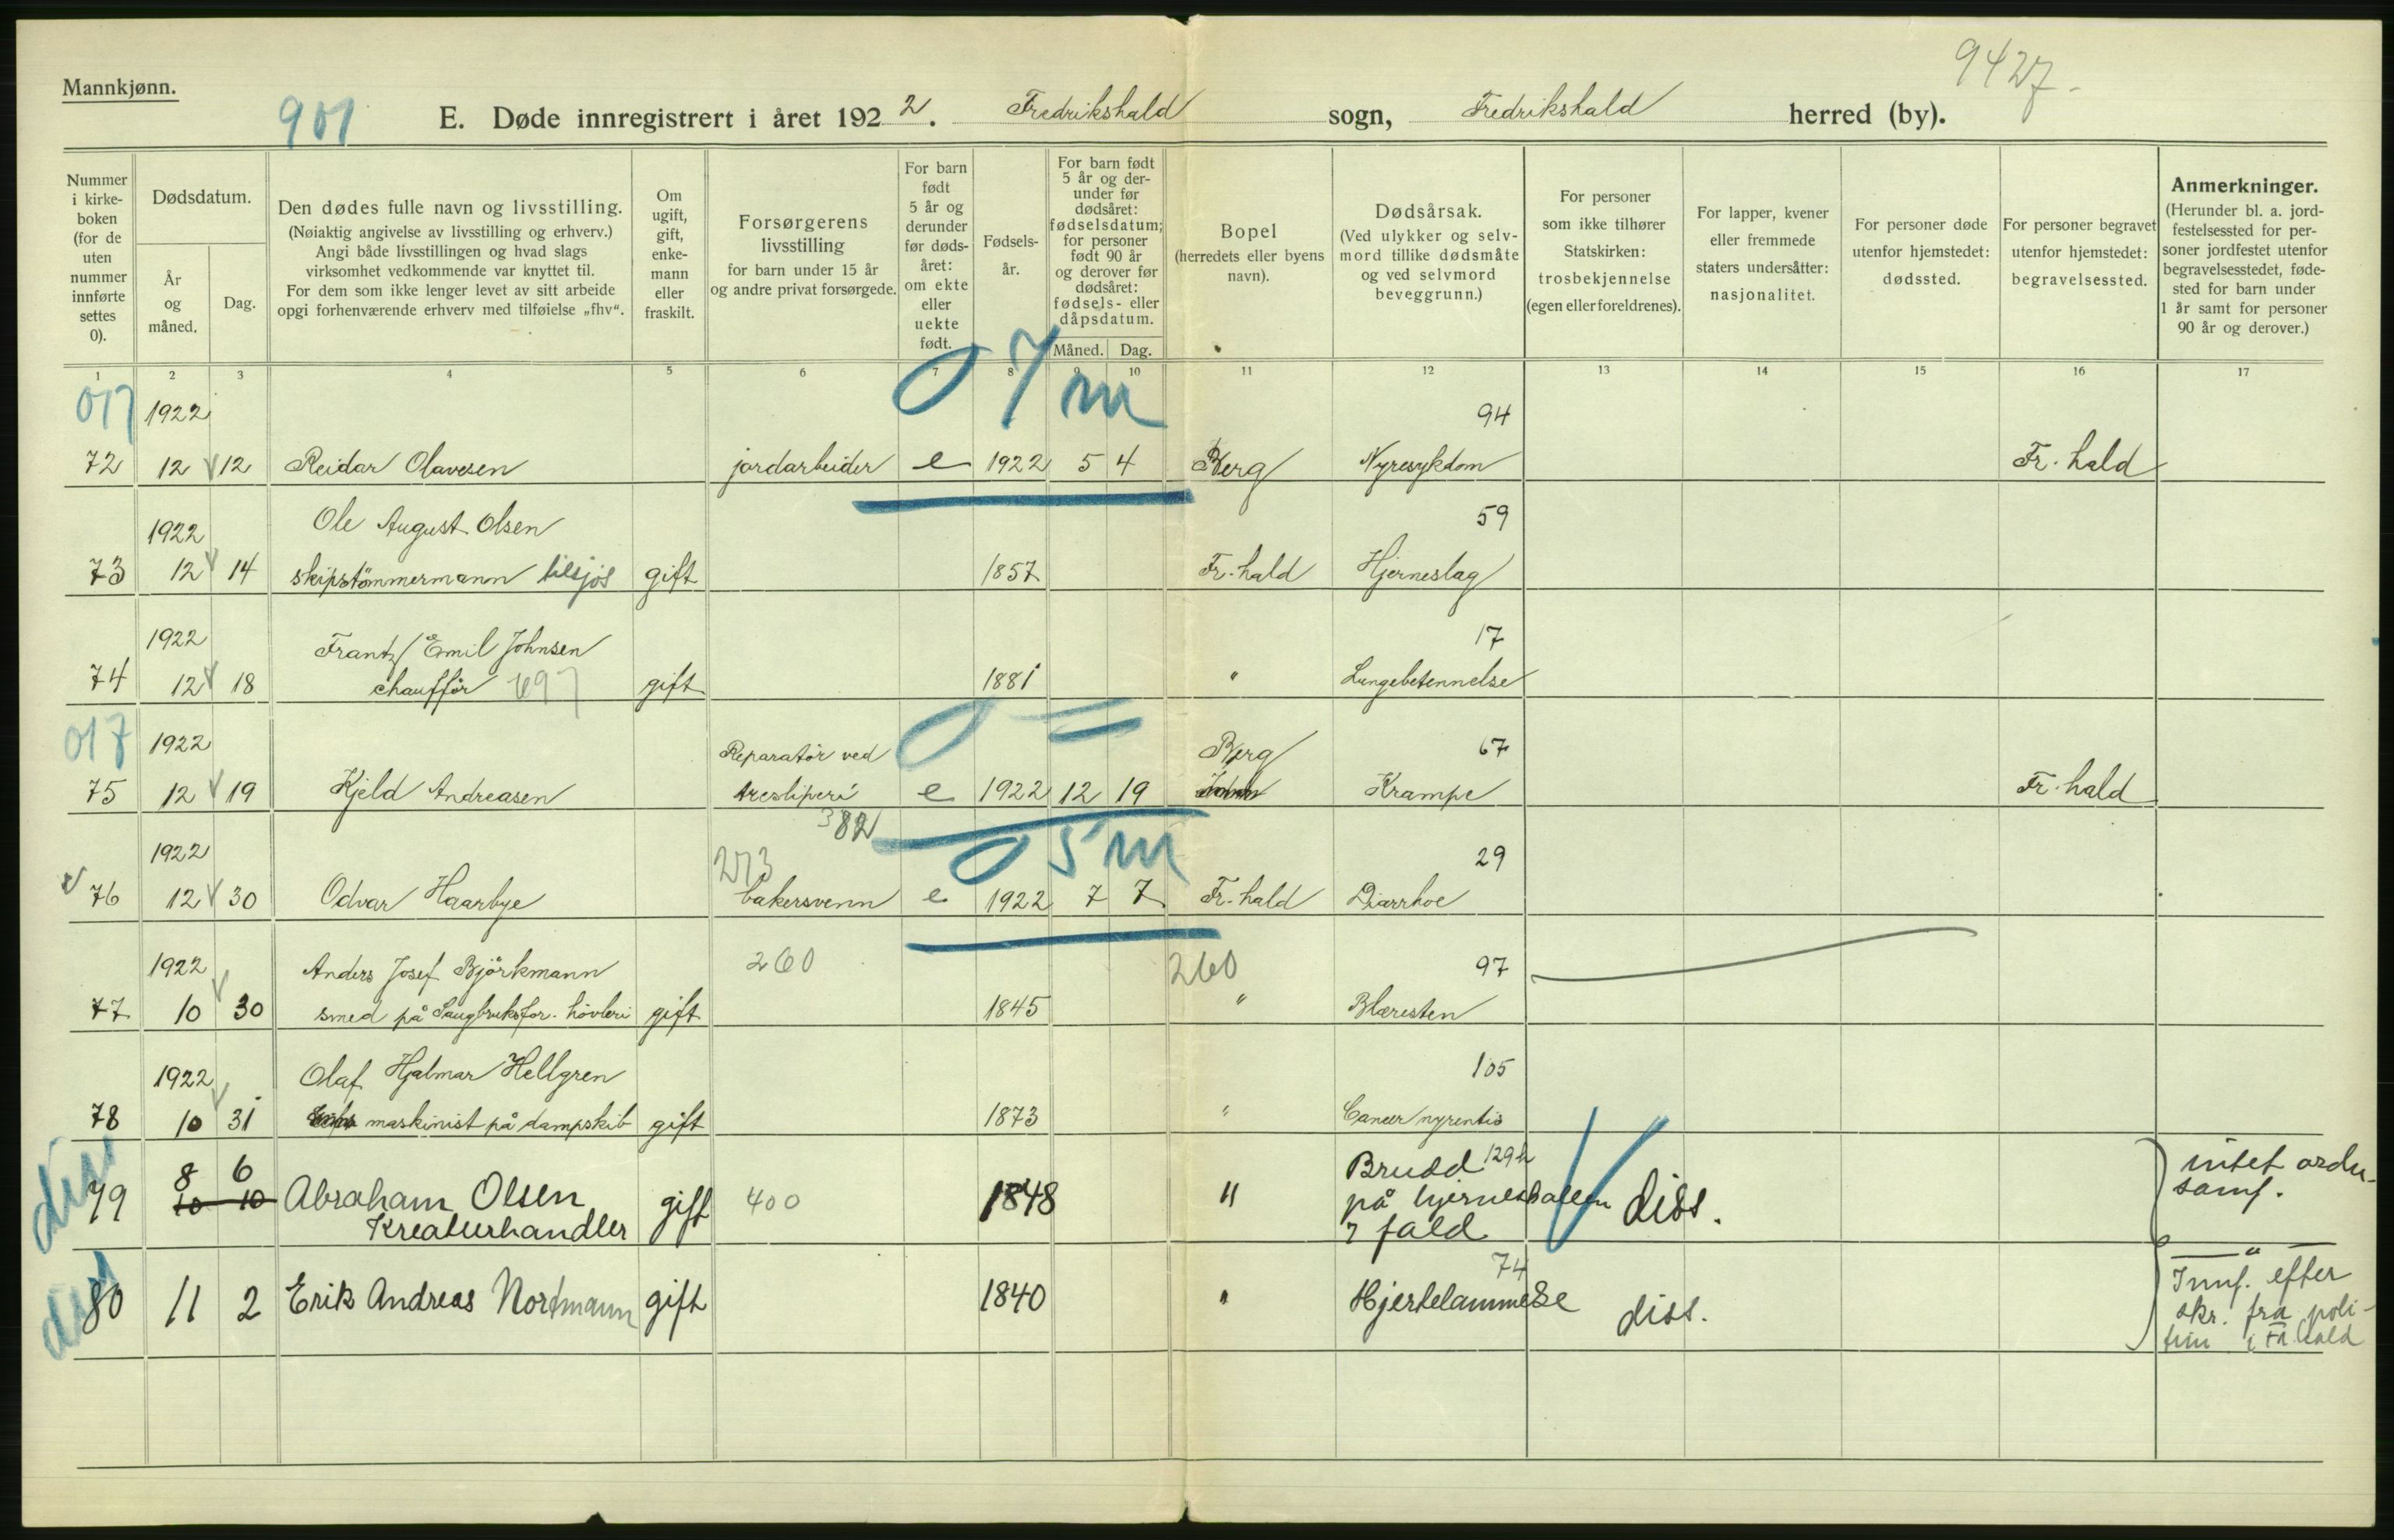 Mannkjønn.
9427.
901
E. Døde innregistrert i året 1922. Fredrikshald sogn, Fredrikshald herred (by).
Nummer i kirkeboken (for de uten nummer innførte settes 0).
Dødsdatum.
År og måned.
Dag.
Den dødes fulle navn og livsstilling.
(Nøiaktig angivelse av livsstilling og erhverv.)
Angi både livsstillingen og hvad slags
virksomhet vedkommende var knyttet til.
For dem som ikke lenger levet av sitt arbeide
opgi forhenværende erhverv med tilføielse „fhv“.
Om ugift, gift, enkemann eller fraskilt.
Forsørgerens livsstilling
for barn under 15 år
og andre privat forsørgede.
For barn født 5 år og derunder før dødsåret: om ekte eller uekte født.
Fødselsår.
For barn født 5 år og derunder før dødsåret: fødselsdatum; for personer født 90 år og derover før dødsåret: fødsels- eller dåpsdatum.
Måned. Dag.
Bopel
(herredets eller byens navn).
Dødsårsak.
(Ved ulykker og selvmord tillike dødsmåte og ved selvmord beveggrunn.)
For personer som ikke tilhører Statskirken: trosbekjennelse (egen eller foreldrenes).
For lapper, kvener eller fremmede staters undersåtter: nasjonalitet.
For personer døde utenfor hjemstedet: dødssted.
For personer begravet utenfor hjemstedet: begravelsessted.
Anmerkninger.
(Herunder bl. a. jordfestelsessted for personer jordfestet utenfor begravelsesstedet, fødested for barn under 1 år samt for personer 90 år og derover.)
1 2 3 4 5 6 7 8 9 10 11 12 13 14 15 16 17
017 1922 0 7 m 94
72 12 12 Reidar Olavesen jordarbeider e 1922 5 4 Berg Nyresykdom Fr. hald
1922 Ole August Olsen 59
73 12 14 skipstömmermann tilsjös gift 1857 Fr. hald Hjerneslag
1922 Frantz Emil Johnsen 17
74 12 18 chaufför 497 gift 1881 " Lungebetennelse
017 1922 Reparatör ved 0 = Berg 67
75 12 19 Kjeld Andreasen tresliperi e 1922 12 19 Krampe Fr. hald
382
1922 273 0 5 m 29
76 12 30 Odvar Haarbye bakersvenn e 1922 7 7 Fr. hald Diarrhoe
1922 Anders Josef Björkmann 260 260 97
77 10 30 smed på Saugbruksfor. hövleri gift 1845 " Blæresten
1922 Olaf Hjalmar Hellgren 105
78 10 31 maskinist på dampskib gift 1873 " Cancer nyrentis
diss 8 6 Brudd 129h intet ordn.
79 10 10 Abraham Olsen gift 400 1848 " på hjerneskallen diss. samf.
Kreaturhandler v fald
diss 74 — " —
80 11 2 Erik Andreas Nortmann gift 1840 " Hjertelammelse diss. Innf. efter
skr. fra poli-
tiin i Fr. hald